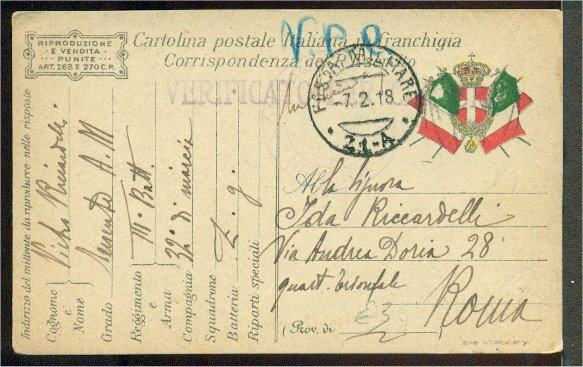 RIPRODUZIONE
E VENDITA
PUNITE
ART. 268 E 270 C.P.
Cartolina postale Italiana in franchigia
Corrispondenza del R. Esercito
VERIFICATO
POSTA MILITARE
-7.2.18
21-A
Indirizzo del mittente da riprodurre nelle risposte
Cognome e Nome Pietro Riccardelli
Grado Sergente A. M
Reggimento e Arma III° Batt.
Compagnia 32ª di marcia
Squadrone
Batteria Z. g.
Riparti speciali
Alla Signora
Ida Riccardelli
Via Andrea Doria 28
quart. Trionfale
Roma
(Prov. di
£3